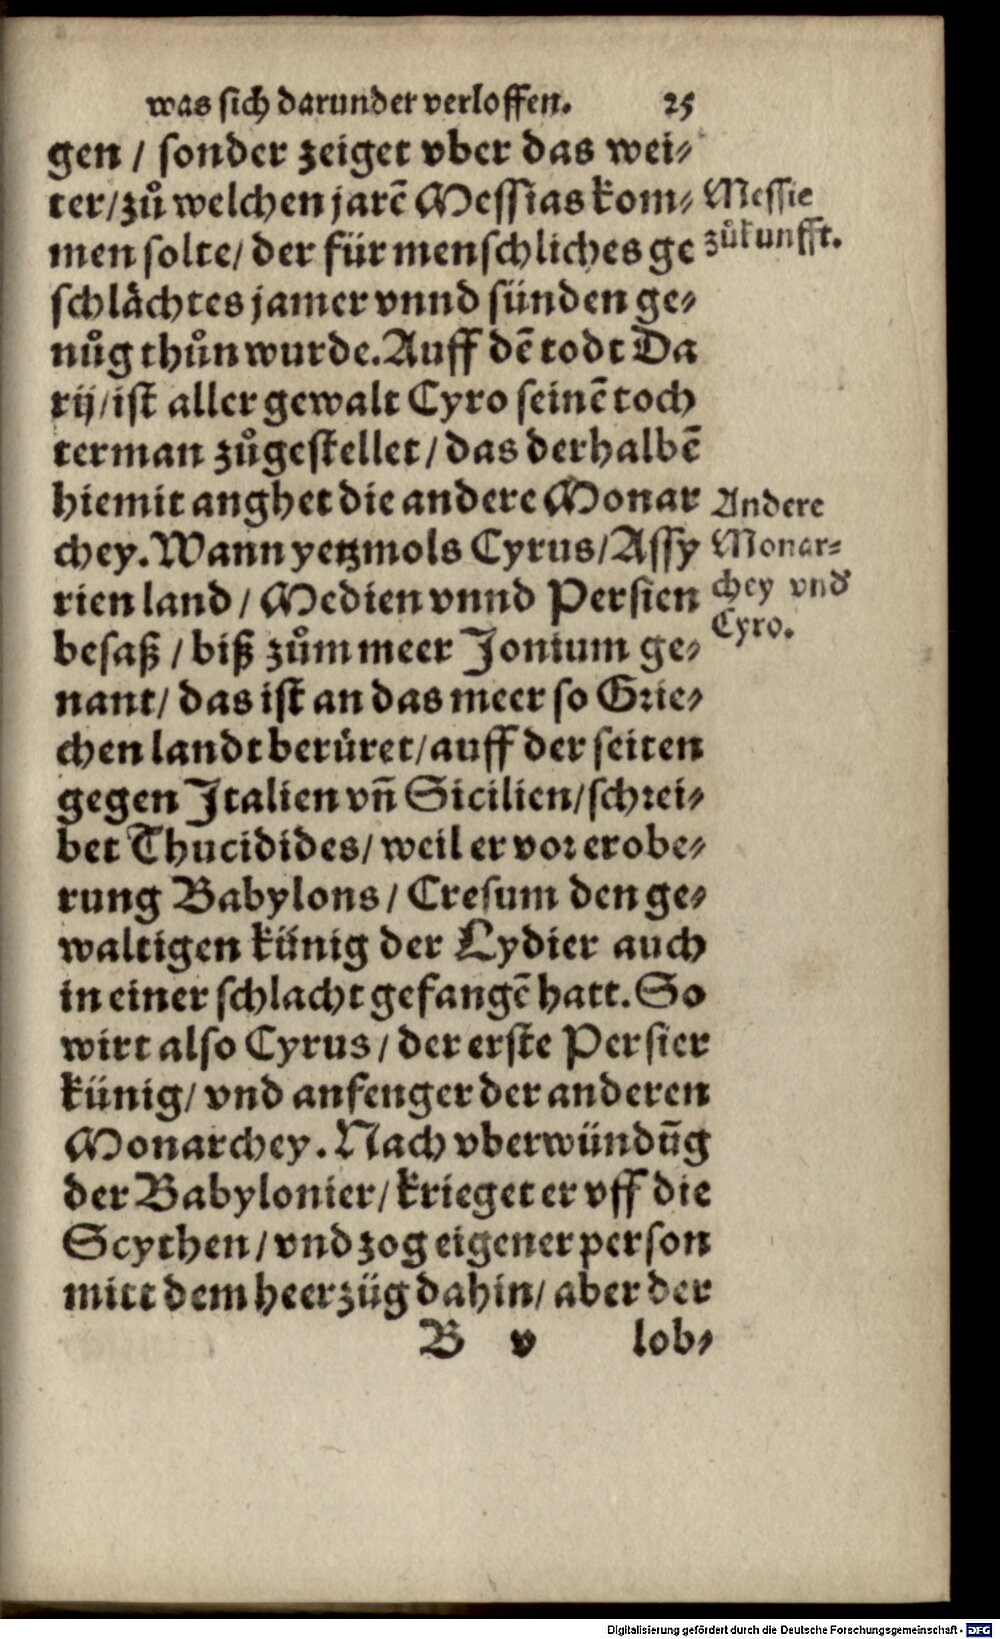 was sich darunder verloffen. 25
gen / sonder zeiget vber das wei⸗
ter/zů welchen jarẽ Messias kom⸗
men solte/ der für menschliches ge
schlächtes jamer vnnd sünden ge⸗
nůg thůn wurde. Auff dẽ todt Da
rij/ist aller gewalt Cyro seinẽ toch
terman zůgestellet / das derhalbẽ
hiemit anghet die andere Monar
chey. Wann yetzmols Cyrus/Assy
rien land / Medien vnnd Persien
besaß / biß zům meer Jonium ge⸗
nant/ das ist an das meer so Grie⸗
chen landt berůret/auff der seiten
gegen Italien vñ Sicilien/schrei⸗
bet Thucidides/ weil er vor erobe⸗
rung Babylons / Cresum den ge⸗
waltigen künig der Lydier auch
in einer schlacht gefangẽ hatt. So
wirt also Cyrus / der erste Persier
künig/ vnd anfenger der anderen
Monarchey. Nach vberwündũg
der Babylonier/ krieget er vff die
Scythen / vnd zog eigener person
mitt dem heerzüg dahin/ aber der
B v lob⸗
Messie
zůkunfft.
Andere
Monar⸗
chey vnd
Cyro.
Digitalisierung gefördert durch die Deutsche Forschungsgemeinschaft - DFG